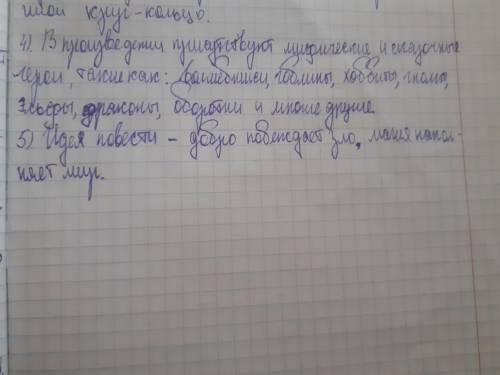 иной круг-кольцо.
4). В произведении присутствуют мифические и сказочные
герои, такие как: волшебники, гоблины, хоббиты, гномы,
эльфы, драконы, оборотни и многие другие
5) Идея повести - добро побеждает зло, магия напол-
няет мир.